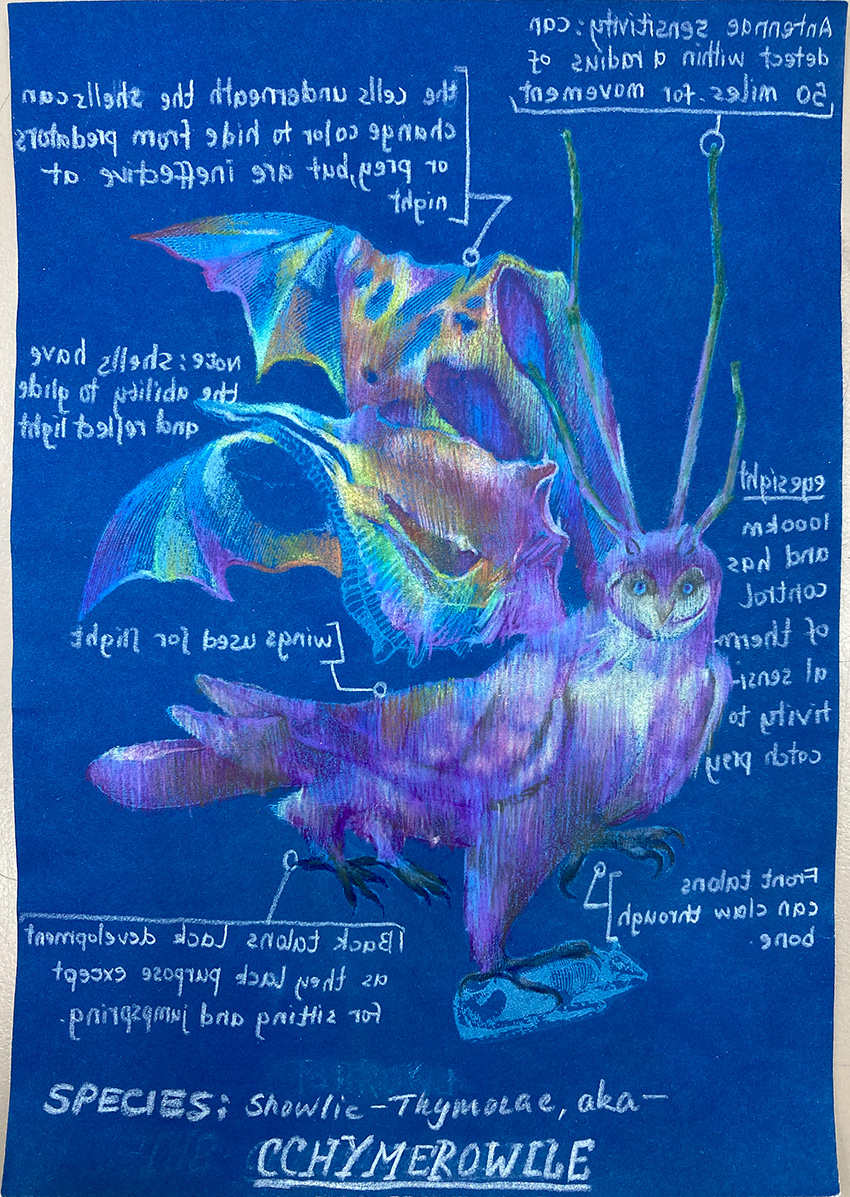 Antennae sensitivity: can
detect within a radius of
50 miles for movement
the cells underneath the shells can
change color to hide from predators
or prey, but are ineffective at
night
Note: shells have
the ability to glide
and reflect light
eyesight
1000km
and has
control
of therm
al sensi-
tivity to
catch prey
wings used for flight
Front talons
can claw through
bone.
Back talons lack development
as they lack purpose except
for sitting and jumpspring.
SPECIES: Showlie-Thymorae, aka-
CCHYMEROWILE